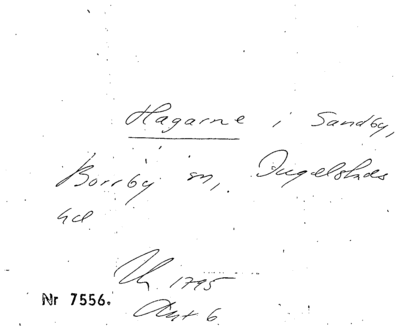 Hagarne i Sandby,
Borrby sn, Ingelstads
hd
1795
Akt 6
Nr 7556.